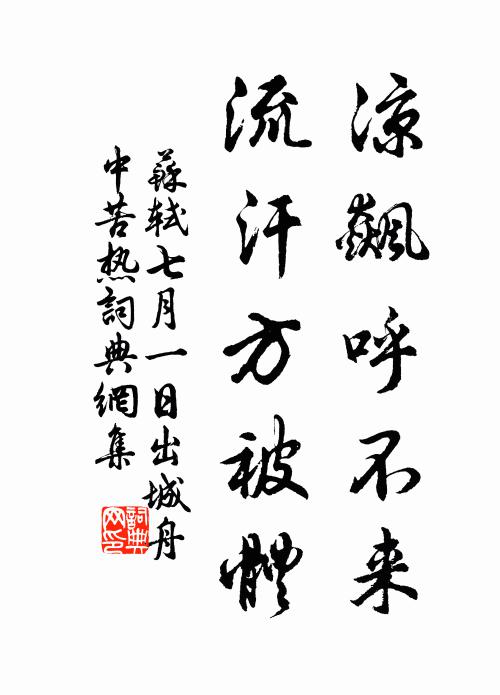 涼飆呼不来
流汗方被體
蘇軾七月一日出城舟
中苦热詞典網集
詞典
网印